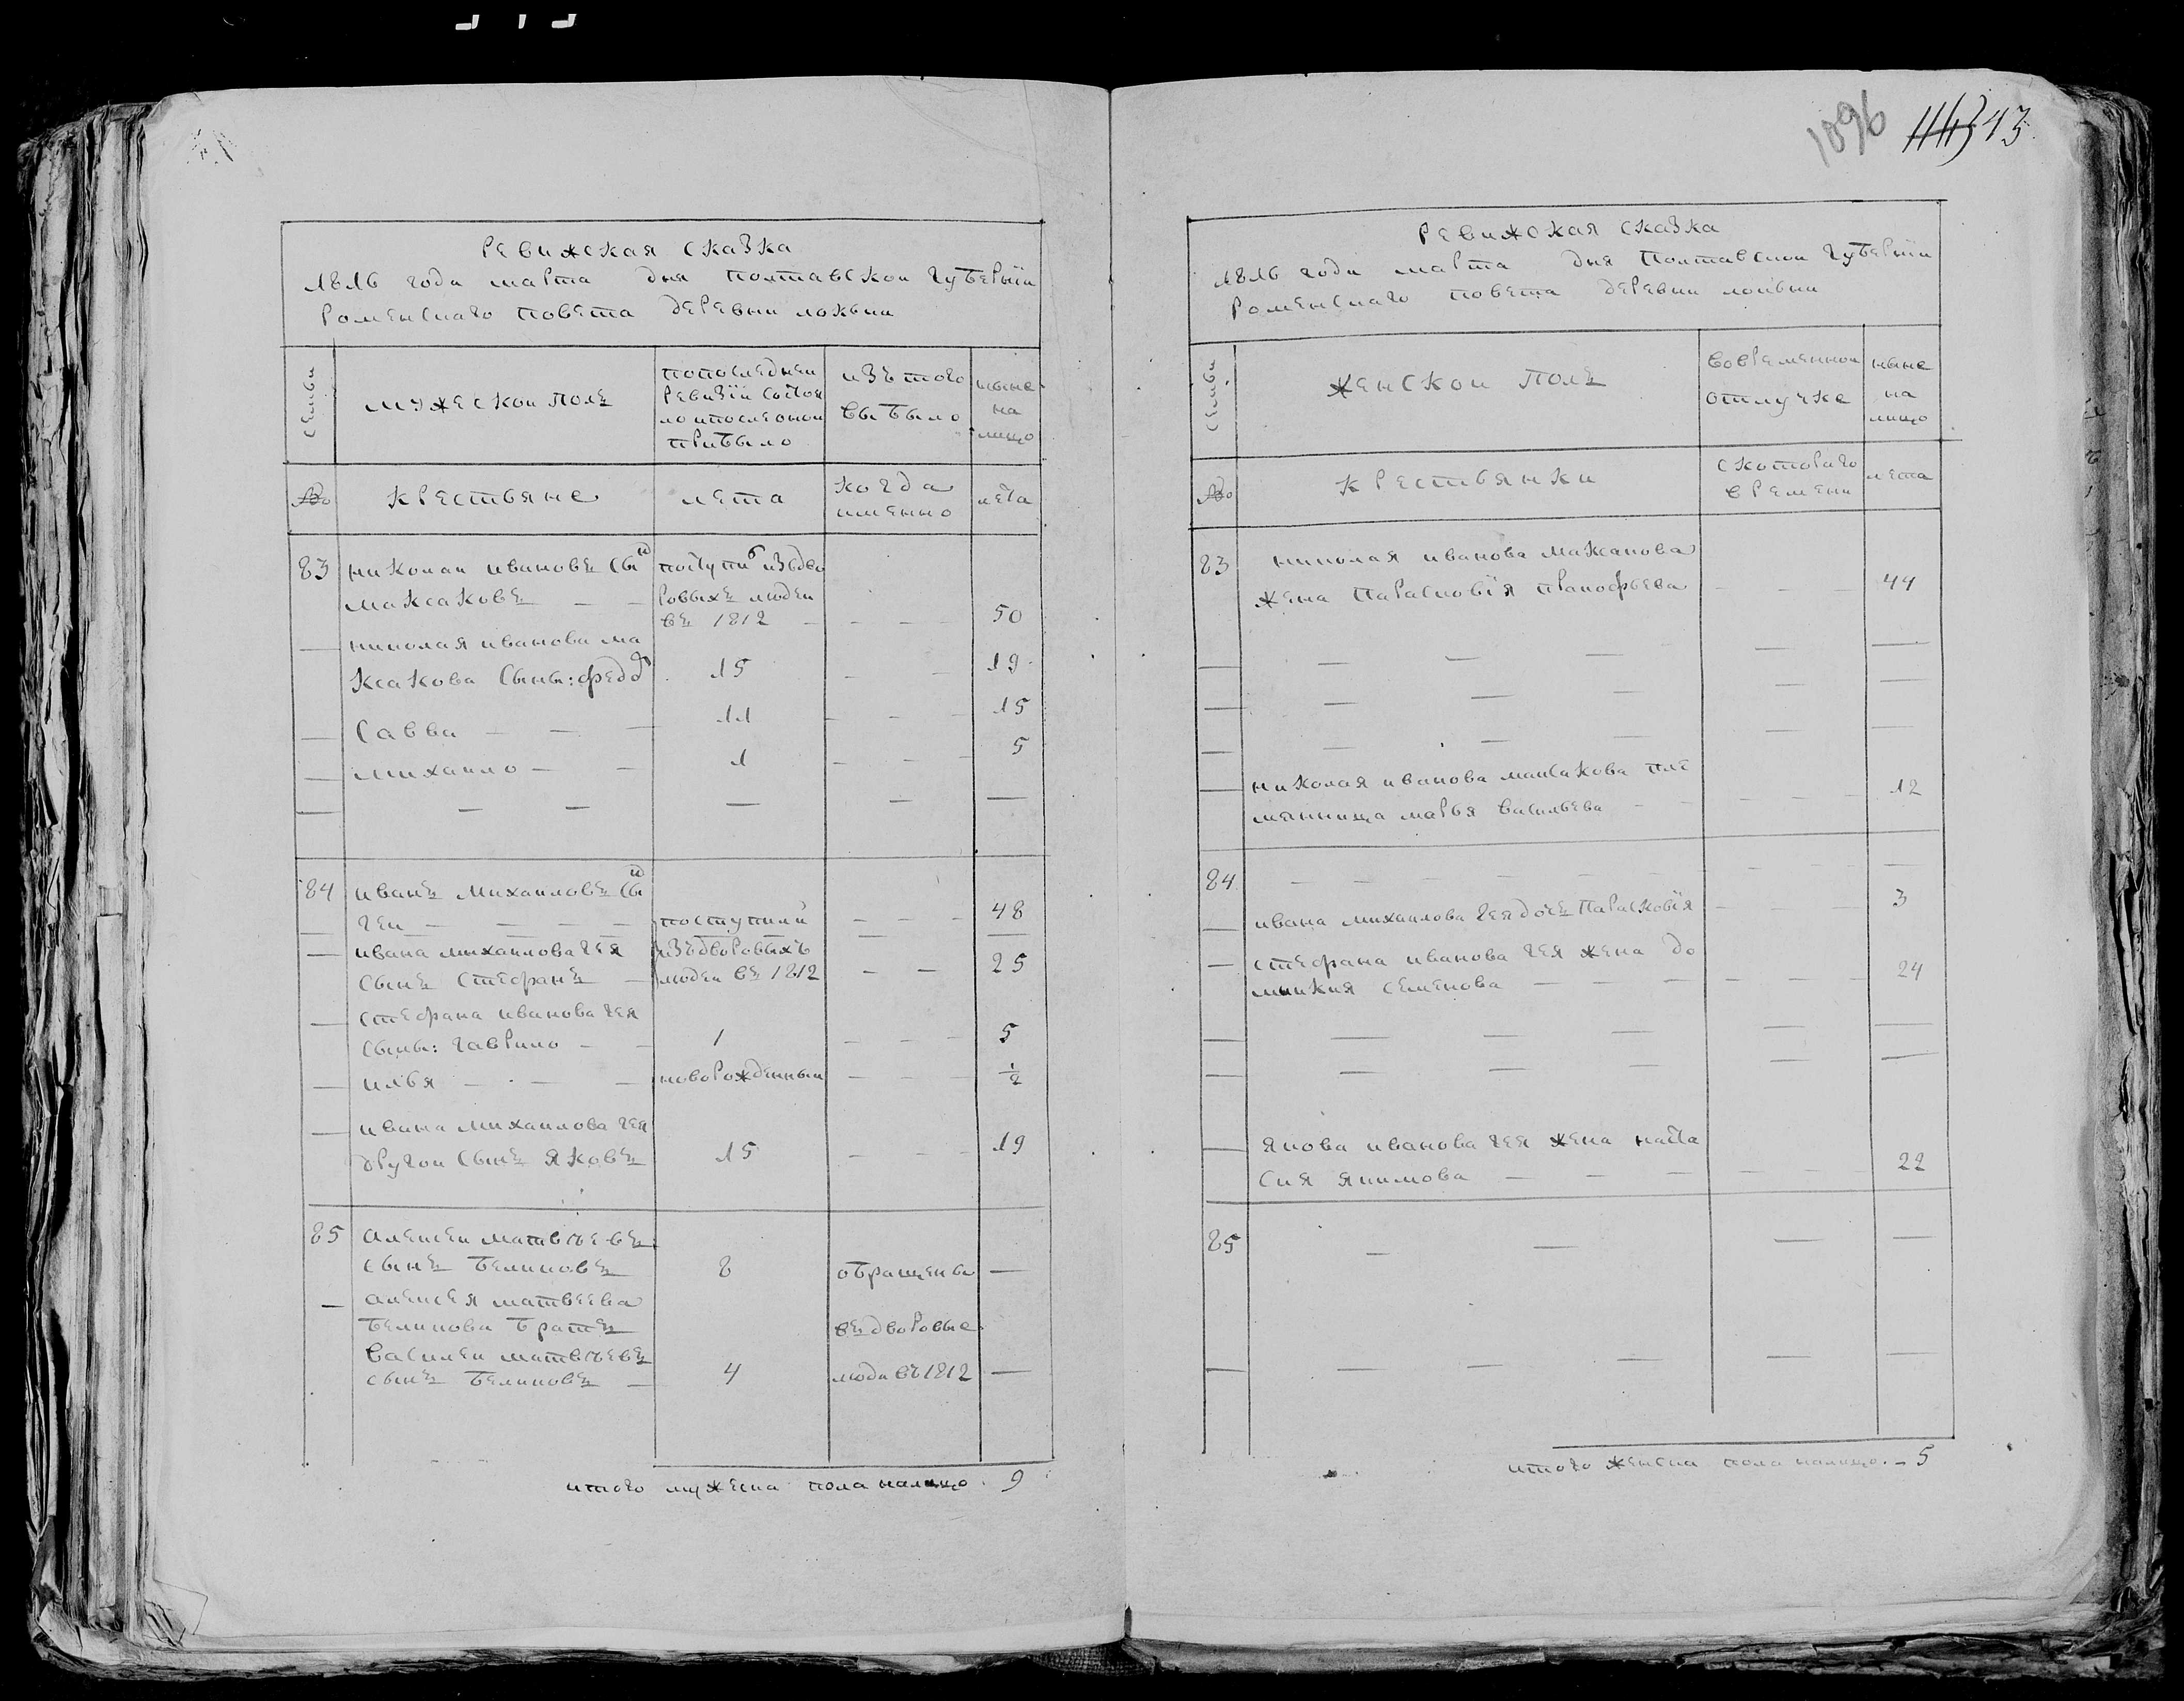 ревижская сказка
1816 года марта дня полтавской губернїи
роменскаго повета деревни локни
семьи
мужескои полъ
попоследнеи
ревизїи состоя
ло ипослеонои
прибыло
изъ того
выбыло
ныне
на
лицо
№
крестьяне
лета
когда
именно
лета
83 николаи ивановъ сы поступи изъдво
максаковъ — — ровыхъ людеи
въ 1812 — — — — 50
— николая иванова ма
ксакова сыны: федо 15 — — 19
— савва — — — 11 — — — 15
— михаило — — 1 — — — 5
— — — — — —
84 иванъ михаиловъ сы
геи — — — — поступили — — — 48
— ивана михаилова гея изъдворовыхъ — —
сынъ стефанъ — людеи въ 1812 — — 25
— стефана иванова гея
сыны: гаврило — — 1 — — — 5
— илья — — — новорожденныи — — — 1/2
— ивана михаилова гея
другои сынъ яковъ 15 — — — 19
85 алексеи матвѣевъ
сынъ беликовъ 8 обращены —
— алексея матвеева
беликова братъ въдворовые
василеи матвѣевъ
сынъ беликовъ — 4 люди въ1812 —
итого мужеска пола налицо. 9
1096
43
ревижская сказка
1816 года марта дня полтавскои губернїи
роменскаго повета деревни локни
семьи
женскои полъ
вовременнои
отлучке
ныне
на
лицо
№
крестьянки
скотораго
времени
лета
83 николая иванова максакова
жена парасковїя прокофьева — — — 44
— — — — — —
— — — — — —
— — — — — —
— николая иванова максакова пле
мянница марья васильева — — — — — 12
84 — — — — — — — — —
— ивана михаилова гея дочъ парасковїя — — — 3
— стефана иванова гея жена до
мникия семенова — — — — — — 24
— — — — — —
— — — — — —
— якова иванова гея жена наста
сия якимова — — — — — — 22
85 — — — —
— — — — — —
итого женска пола налицо. — 5